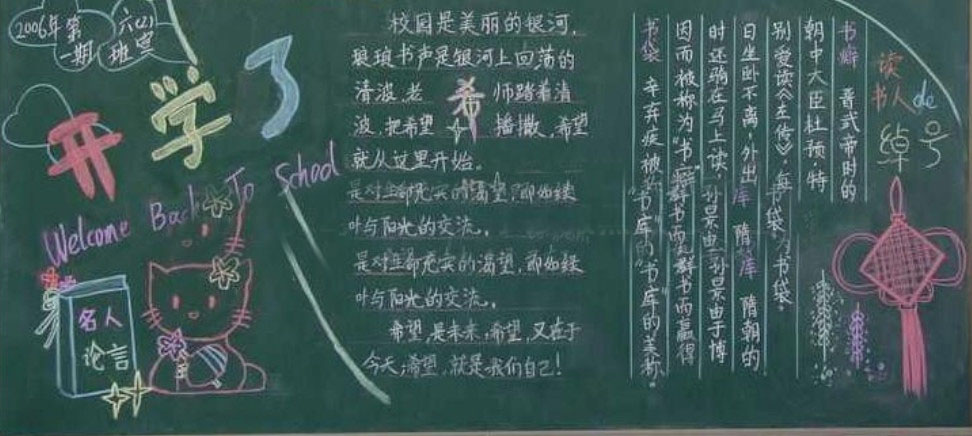 2006年第
一期
六(2)
班宣
开学了
Welcome Back To School
名人
论言
校园是美丽的银河,
琅琅书声是银河上回荡的
清波,老 希 师踏着清
波,把希望 播撒,希望
就从这里开始。
是对生命充实的渴望,即如绿
叶与阳光的交流。
是对生命充实的渴望,即如绿
叶与阳光的交流。
希望,是未来,希望,又在于
今天,希望,就是我们自己!
读
书人de
绰号
书癖 晋武帝时的
朝中大臣杜预,特
别爱读《左传》,每
日坐卧不离,外出
时还驹在马上读,
因而被称为"书
书袋
书库
隋朝的
孙景由于博
群书而赢得
"书库"的美称。